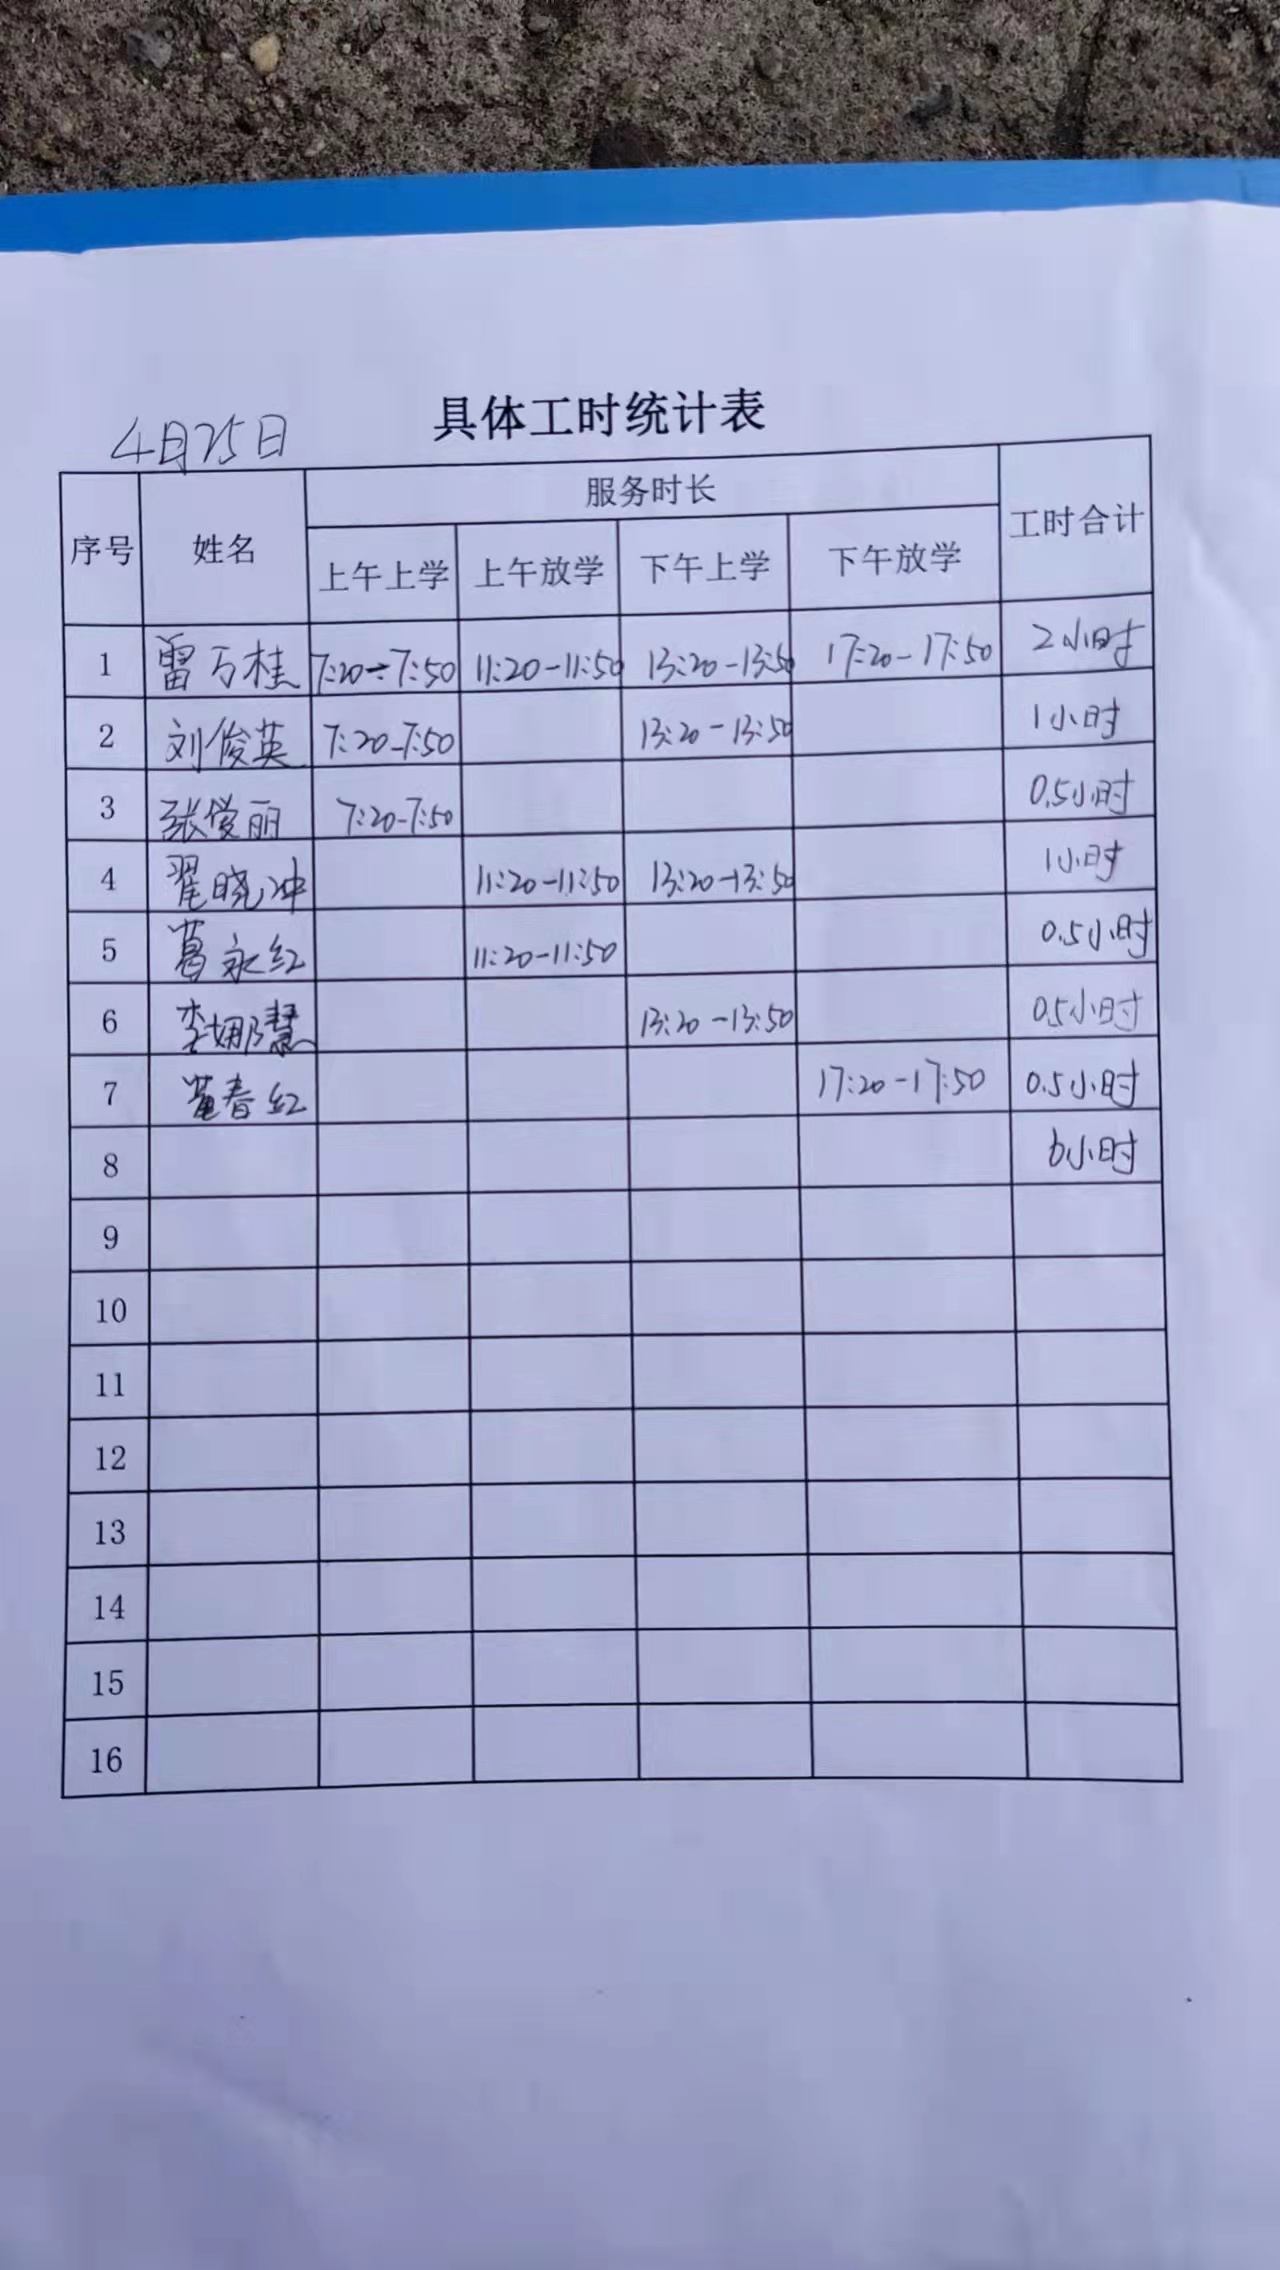 4月25日
具体工时统计表
序号 姓名 服务时长 工时合计
上午上学 上午放学 下午上学 下午放学
1 雷万桂 7:20-7:50 11:20-11:50 13:20-13:50 17:20-17:50 2小时
2 刘俊英 7:20-7:50 13:20-13:50 1小时
3 张俊丽 7:20-7:50 0.5小时
4 翟晓冲 11:20-11:50 13:20-13:50 1小时
5 葛永红 11:20-11:50 0.5小时
6 李娜慧 13:20-13:50 0.5小时
7 春红 17:20-17:50 0.5小时
8 6小时
9
10
11
12
13
14
15
16